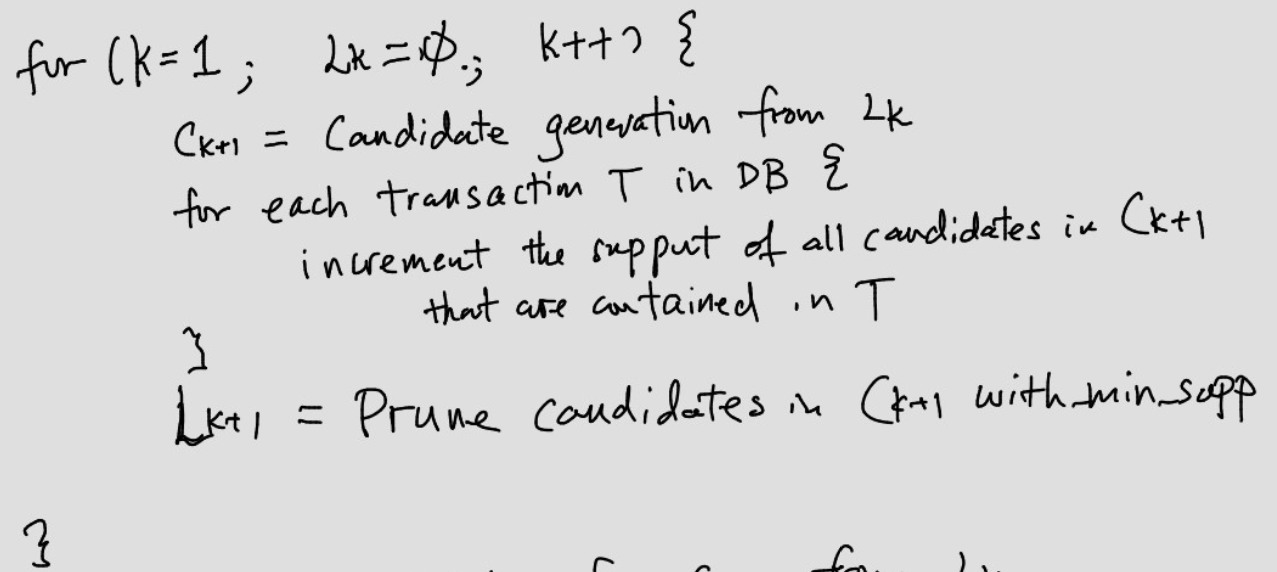 for (k=1; Lk=∅.; k++) {
Ck+1 = Candidate generation from Lk
for each transaction T in DB {
increment the support of all candidates in Ck+1
that are contained in T
}
Lk+1 = Prune candidates in Ck+1 with min_supp
}